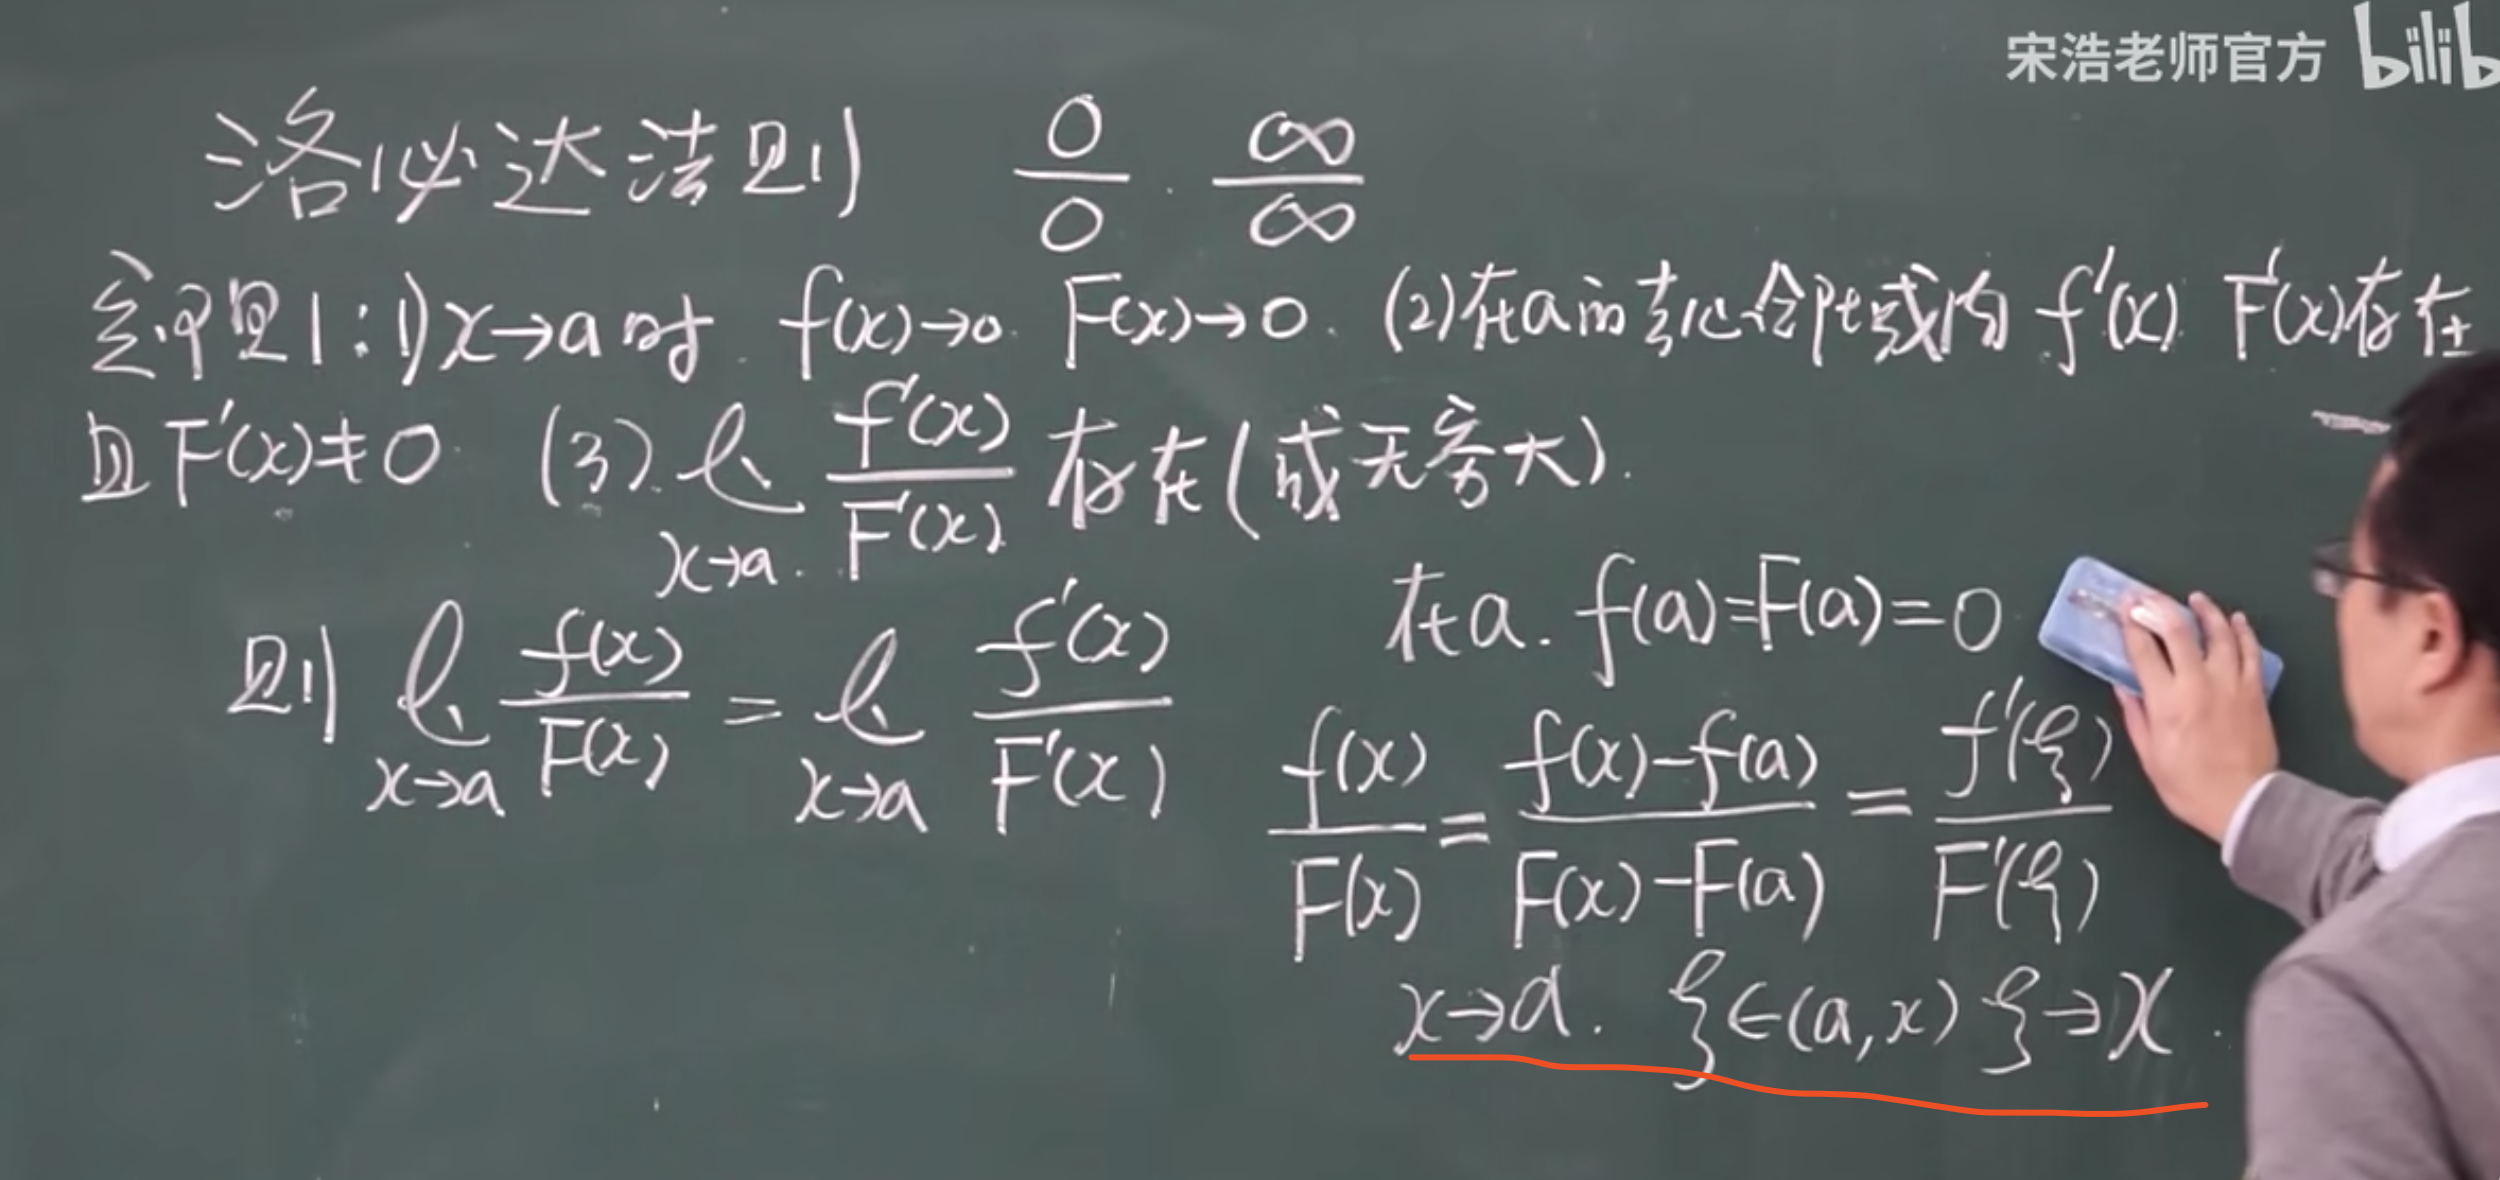 宋浩老师官方 bilib
洛必达法则 0/0 . ∞/∞
定理1:1)x→a时 f(x)→0. F(x)→0. (2)在a的去心邻域内 f'(x). F'(x)存在
且F'(x)≠0. (3). lim x→a. f'(x)/F'(x) 存在(或无穷大).
则 lim x→a f(x)/F(x) = lim x→a f'(x)/F'(x)
在a. f(a)=F(a)=0
f(x)/F(x) = f(x)-f(a)/F(x)-F(a) = f'(ξ)/F'(ξ)
x→a. ξ∈(a,x) ξ→x.